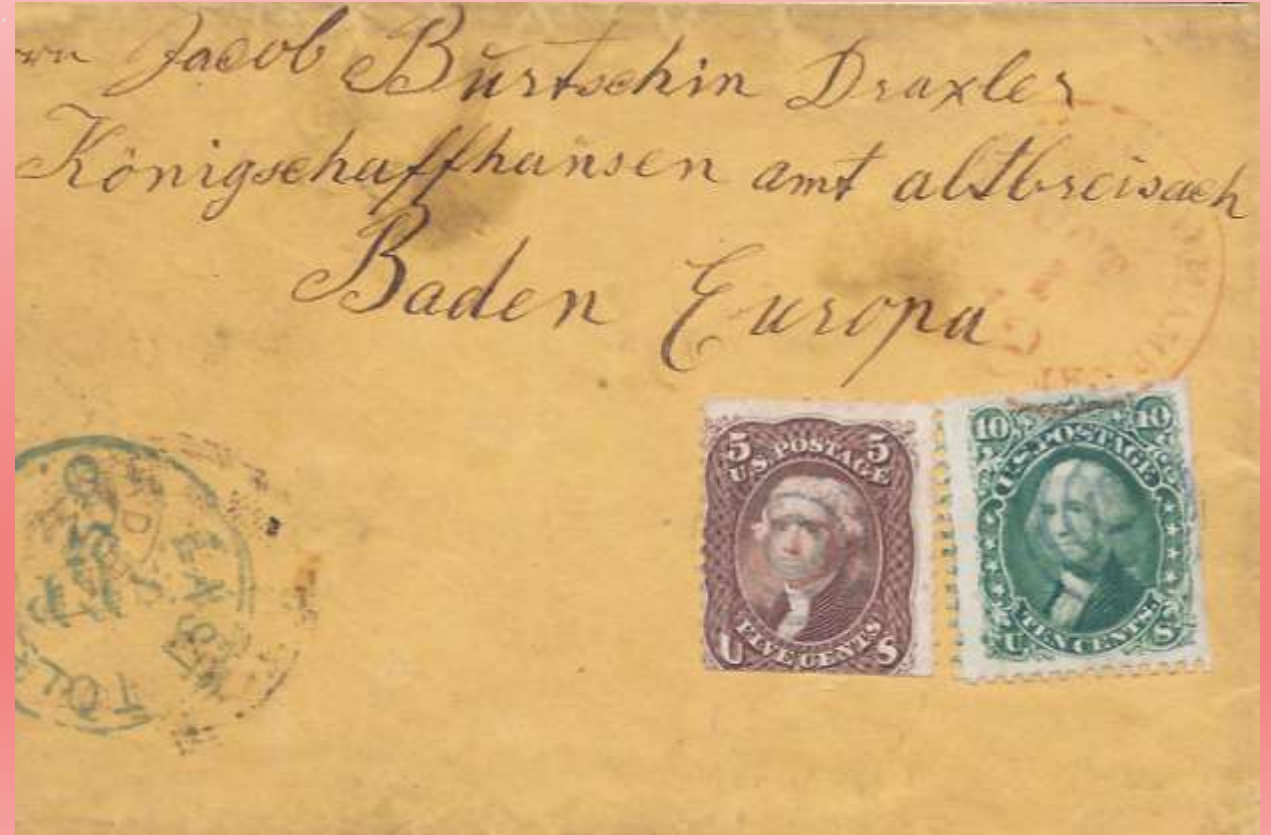 Jacob Burtschin Draxler
Königschaffhausen amt altbreisach
Baden Europa
5 5
U.S. POSTAGE
FIVE CENTS
U S
10 10
U.S. POSTAGE
TEN CENTS.
U S
EAST